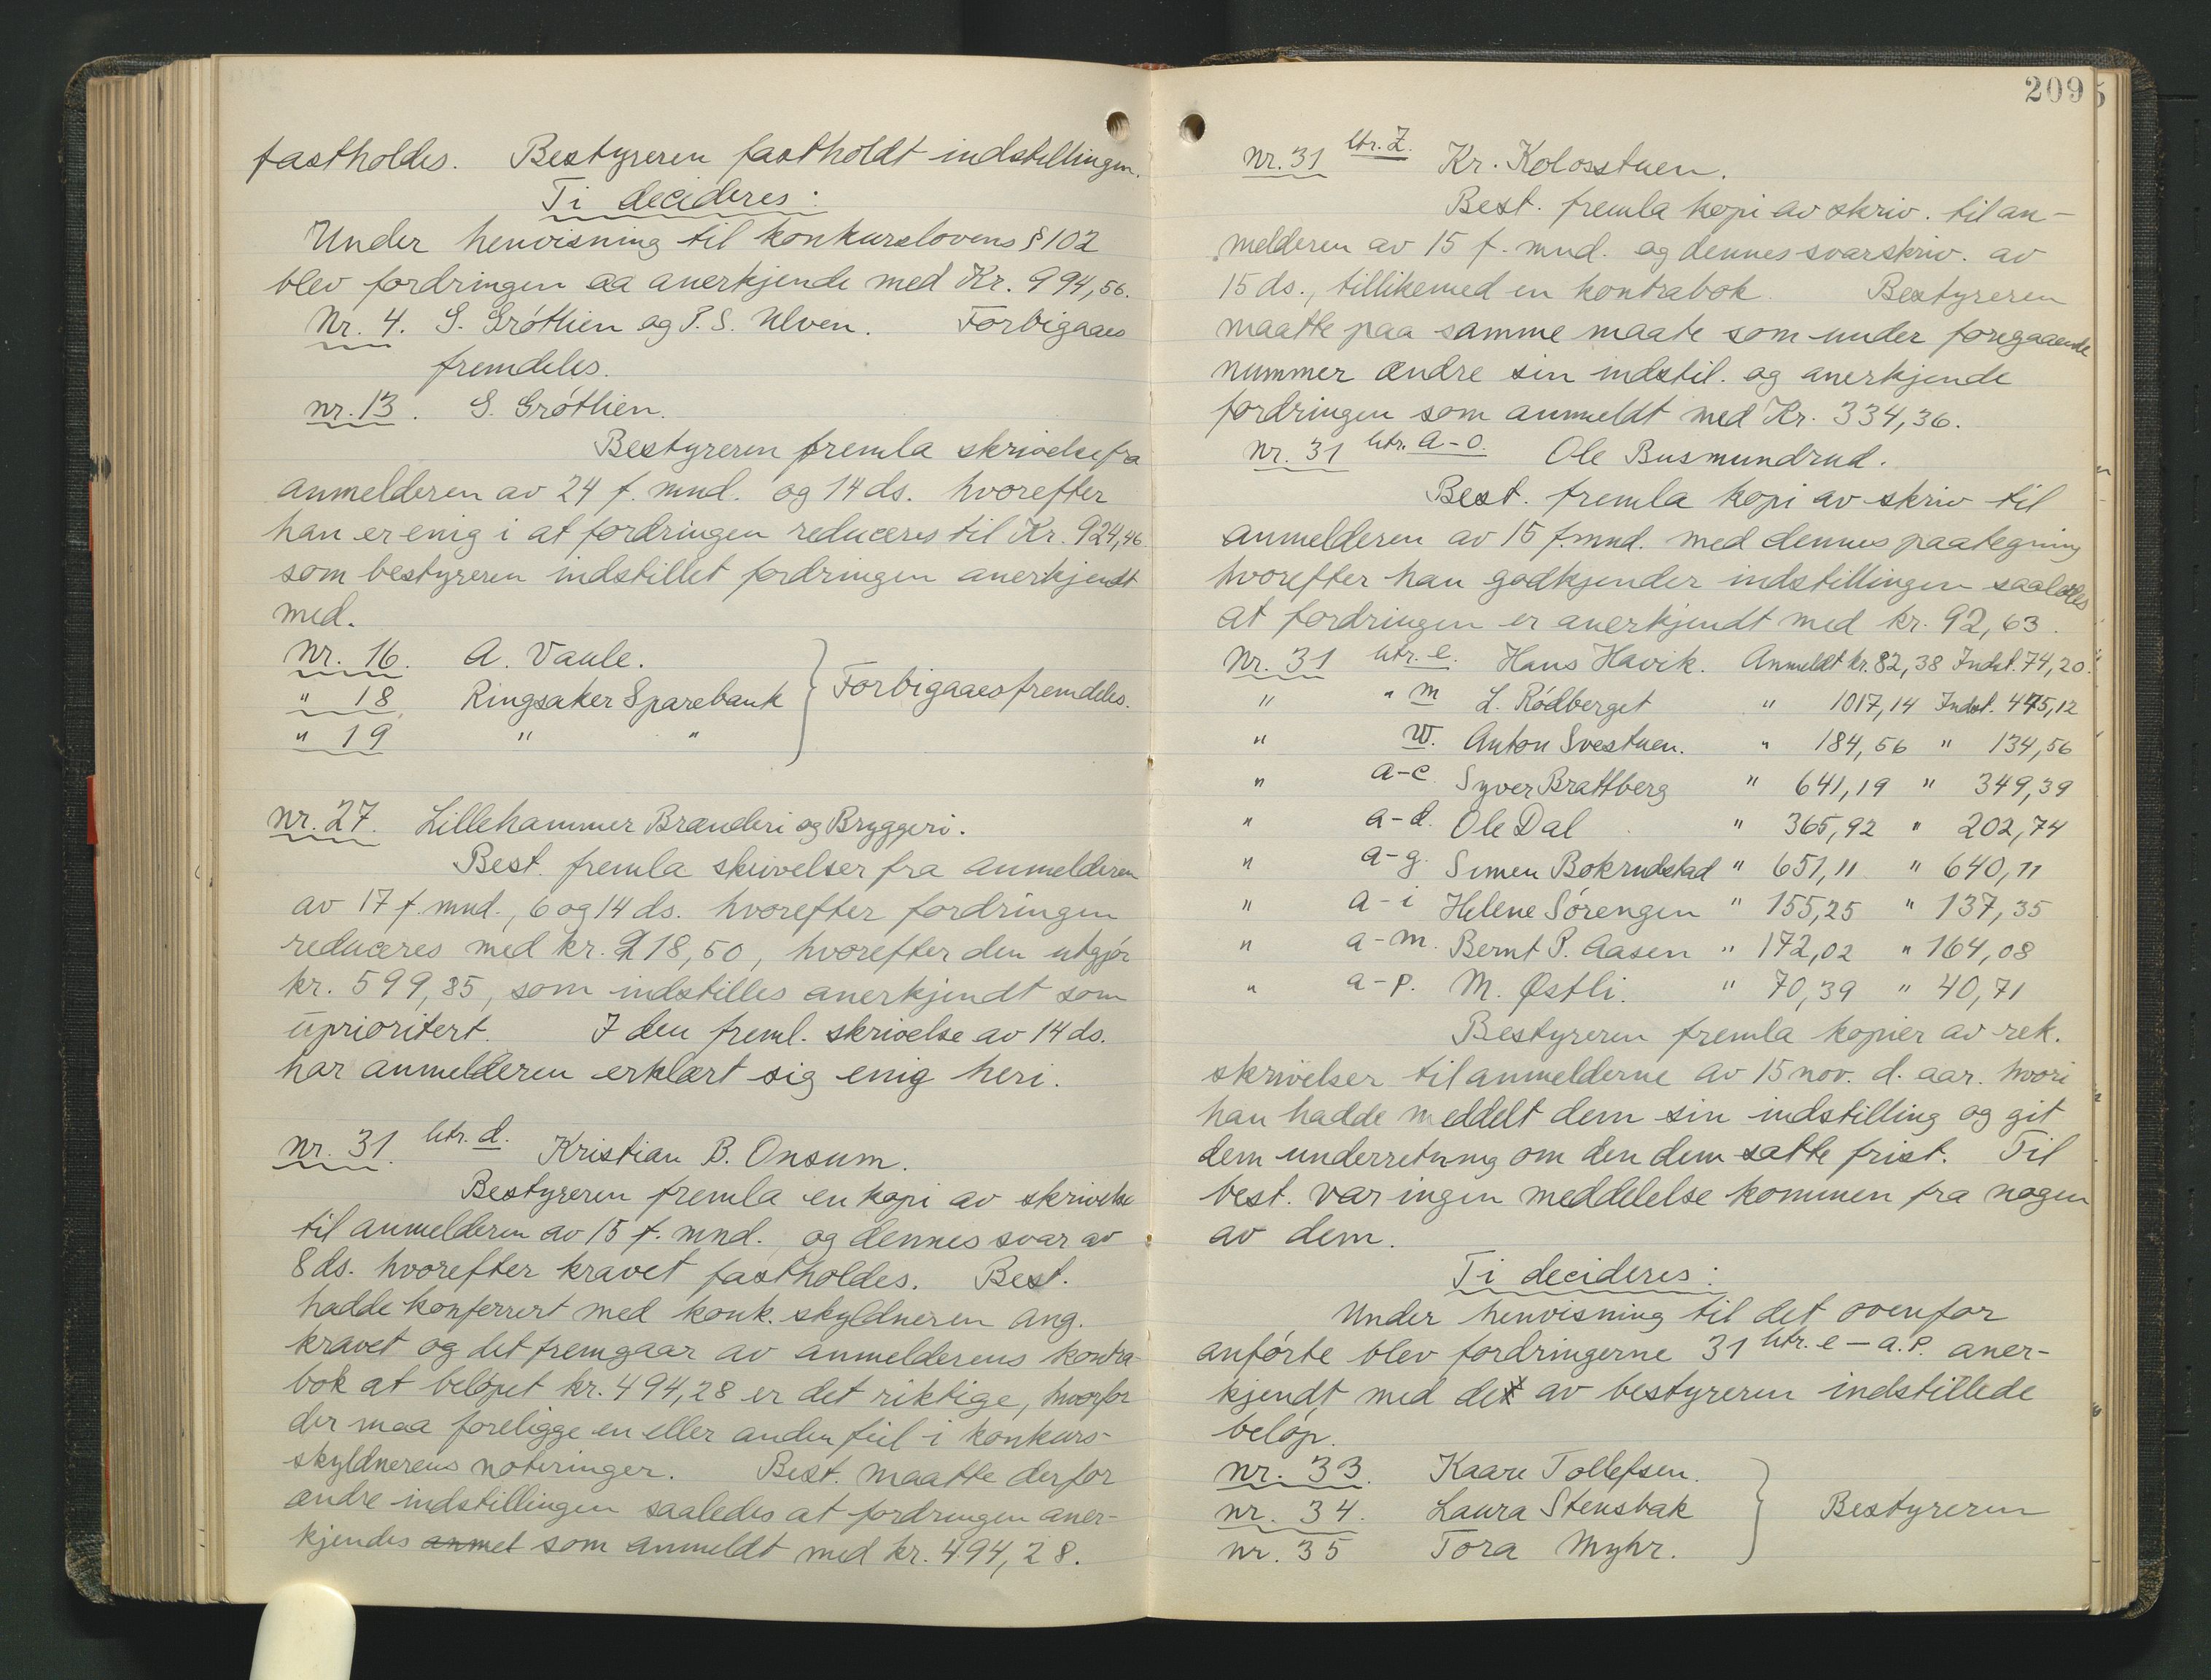 fastholdes. Bestyreren fastholdt indstillingen.
Ti decideres:
Under henvisning til konkurslovens § 102
blev fordringen aa anerkjende med Kr. 994,56.
Nr. 4. S. Gróttien og P. S. Ulven. Forbigaaes
fremdeles.
nr. 13. S. Gróttien.
Bestyreren fremla skrivelse fra
anmelderen av 24 f. mnd. og 14 ds. hvorefter
han er enig i at fordringen reduceres til Kr. 924,46
som bestyreren indstillet fordringen anerkjendt
med.
Nr. 16. A. Vaule.
" 18 Ringsaker Sparebank } Forbigaaes fremdeles.
" 19 " "
nr. 27. Lillehammer Brænderi og Bryggeri.
Best. fremla skrivelser fra anmelderen
av 17 f. mnd., 6 og 14 ds. hvorefter fordringen
reduceres med kr. 218,50, hvorefter den utgjør
kr. 599,85, som indstilles anerkjendt som
uprioritert. I den freml. skrivelse av 14 ds.
har anmelderen erklært sig enig heri.
nr. 31. litr. d. Kristian B. Onsum.
Bestyreren fremla en kopi av skrivelse
til anmelderen av 15 f. mnd. og dennes svar av
8 ds. hvorefter kravet fastholdes. Best.
hadde konferrert med konk. skyldneren ang.
kravet og det fremgaar av anmelderens kontra-
bok at beløpet kr. 494,28 er det riktige, hvorfor
der maa foreligge en eller anden feil i konkurs-
skyldnerens noteringer. Best. maatte derfor
ændre indstillingen saaledes at fordringen aner-
kjendes anmel som anmeldt med kr. 494,28.
209
nr. 31 ltr. Z. Kr. Kolosstuen.
Best. fremla kopi av skriv. til an-
melderen av 15 f. mnd. og dennes svarskriv. av
15 ds., tillikemed en kontrabok. Bestyreren
maatte paa samme maate som under foregaaende
nummer ændre sin indstil. og anerkjende
fordringen som anmeldt med Kr. 334,36.
nr. 31 litr. a-o. Ole Busmundrud.
Best. fremla kopi av skriv til
anmelderen av 15 f. mnd. med dennes paategning
hvorefter han godkjender indstillingen saaledes
at fordringen er anerkjendt med kr. 92,63.
Nr. 31 litr. e. Hans Havik. Anmeldt kr. 82,38 Indst. 74,20.
" " m L. Rödberget " 1017,14 Indst. 445,12
" W. Anton Svestuen. " 184,56 " 134,56
" a-c Syver Brattberg " 641,19 " 349,39
" a-d. Ole Dal " 365,92 " 202,74
" a-g. Simen Bokrudstad " 651,11 " 640,11
" a-i Helene Sórengen " 155,25 " 137,35
" a-m. Bernt P. Aasen " 172,02 " 164,08
" a-p. M. Østli. " 70,39 " 40,71
Bestyreren fremla kopier av rek.
skrivelser til anmelderne av 15 nov. d. aar. hvori
han hadde meddelt dem sin indstilling og git
dem underretning om den dem satte frist. Til
best. var ingen meddelelse kommen fra nogen
av dem.
Ti decideres:
Under henvisning til det ovenfor
anførte blev fordringerne 31 litr. e - a.p. aner-
kjendt med det av bestyreren indstillede
beløp.
nr. 33. Kaare Tollefsen.
nr. 34. Laura Stensbak } Bestyreren
nr. 35 Tora Myhr.